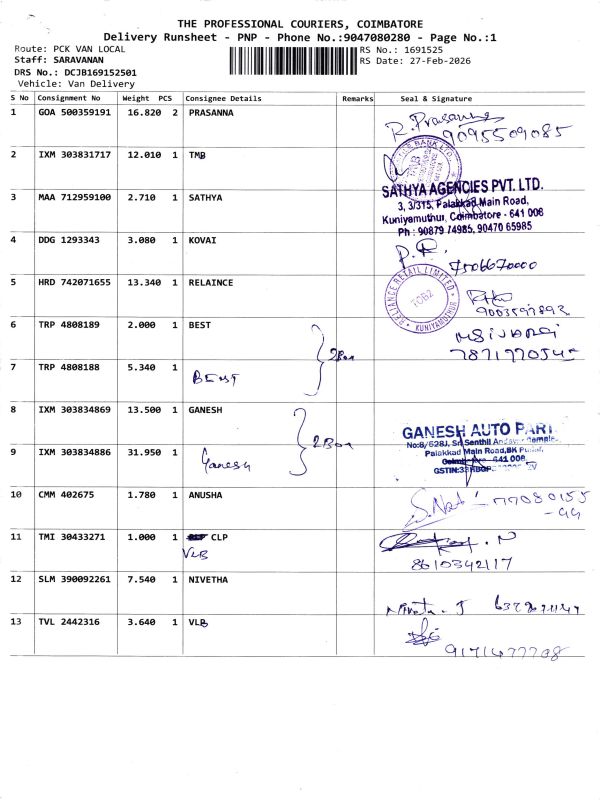 THE PROFESSIONAL COURIERS, COIMBATORE
Delivery Runsheet - PNP - Phone No.:9047080280 - Page No.:1
Route: PCK VAN LOCAL RS No.: 1691525
Staff: SARAVANAN RS Date: 27-Feb-2026
DRS No.: DCJB169152501
Vehicle: Van Delivery
S No Consignment No Weight PCS Consignee Details Remarks Seal & Signature
1 GOA 500359191 16.820 2 PRASANNA R. Prasanna
9095509085
2 IXM 303831717 12.010 1 TMB
SATHYA AGENCIES PVT. LTD.
3 MAA 712959100 2.710 1 SATHYA 3, 3/315, Palakkad Main Road,
Kuniyamuthur, Coimbatore - 641 008
Ph : 90879 74985, 90470 65985
4 DDG 1293343 3.080 1 KOVAI P. K.
7506670000
5 HRD 742071655 13.340 1 RELAINCE RELIANCE RETAIL LIMITED
TOB2
KUNIYAMUTHUR
9003597892
6 TRP 4808189 2.000 1 BEST
2Box
7 TRP 4808188 5.340 1
BEST
8 IXM 303834869 13.500 1 GANESH GANESH AUTO PARTS
2Box
No:8/528J, Sri Senthil Andavar Temple
9 IXM 303834886 31.950 1 Ganesh Palakkad Main Road, BK Pudur,
Coimbatore 641 008
10 CMM 402675 1.780 1 ANUSHA
11 TMI 30433271 1.000 1 CLP
VLB
8610342117
12 SLM 390092261 7.540 1 NIVETHA
Niveta. J
13 TVL 2442316 3.640 1 VLB